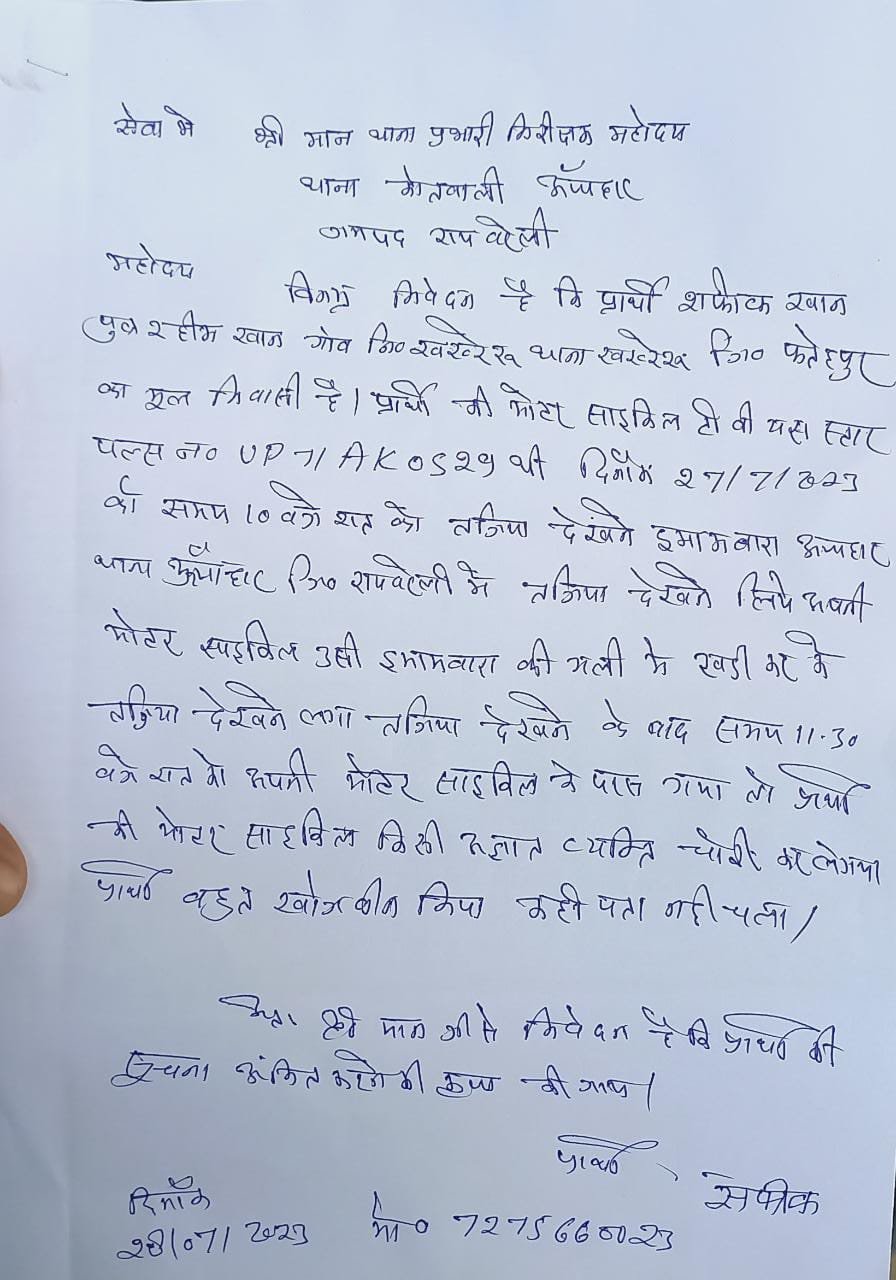 सेवा मे श्री मान थाना प्रभारी निरीक्षक महोदय
थाना कोतवाली ऊँचाहार
जनपद रायबरेली
महोदय विनम्र निवेदन है कि प्रार्थी शफीक खान
पुत्र रहीम खान गांव नि० खखरेरू थाना खखरेरू जि० फतेहपुर
का मूल निवासी है। प्रार्थी की मोटर साइकिल टी वी यस स्टार
पल्स न० UP 71 AK 0529 थी दिनाँक 27/7/2023
की समय 10 बजे रात को तजिया देखने इमामबारा ऊचाहार
थाना ऊँचाहार जि० रायबरेली मे तजिया देखने लिये अपनी
मोटर साइकिल उसी इमामबारा की गली मे खडी कर के
तजिया देखने लगा तजिया देखने के बाद समय 11.30
बजे रात को अपनी मोटर साइकिल के पास गया तो प्रार्थी
की मोटर साइकिल किसी अज्ञात व्यक्ति चोरी कर लेगया
प्रार्थी बहुत खोजबीन किया कही पता नही चला।
अतः श्री मान जी से निवेदन है कि प्रार्थी की
सूचना अंकित करने की कृपा की जाय।
प्रार्थी सफीक
दिनाँक
28/07/2023 मो० 7275660023